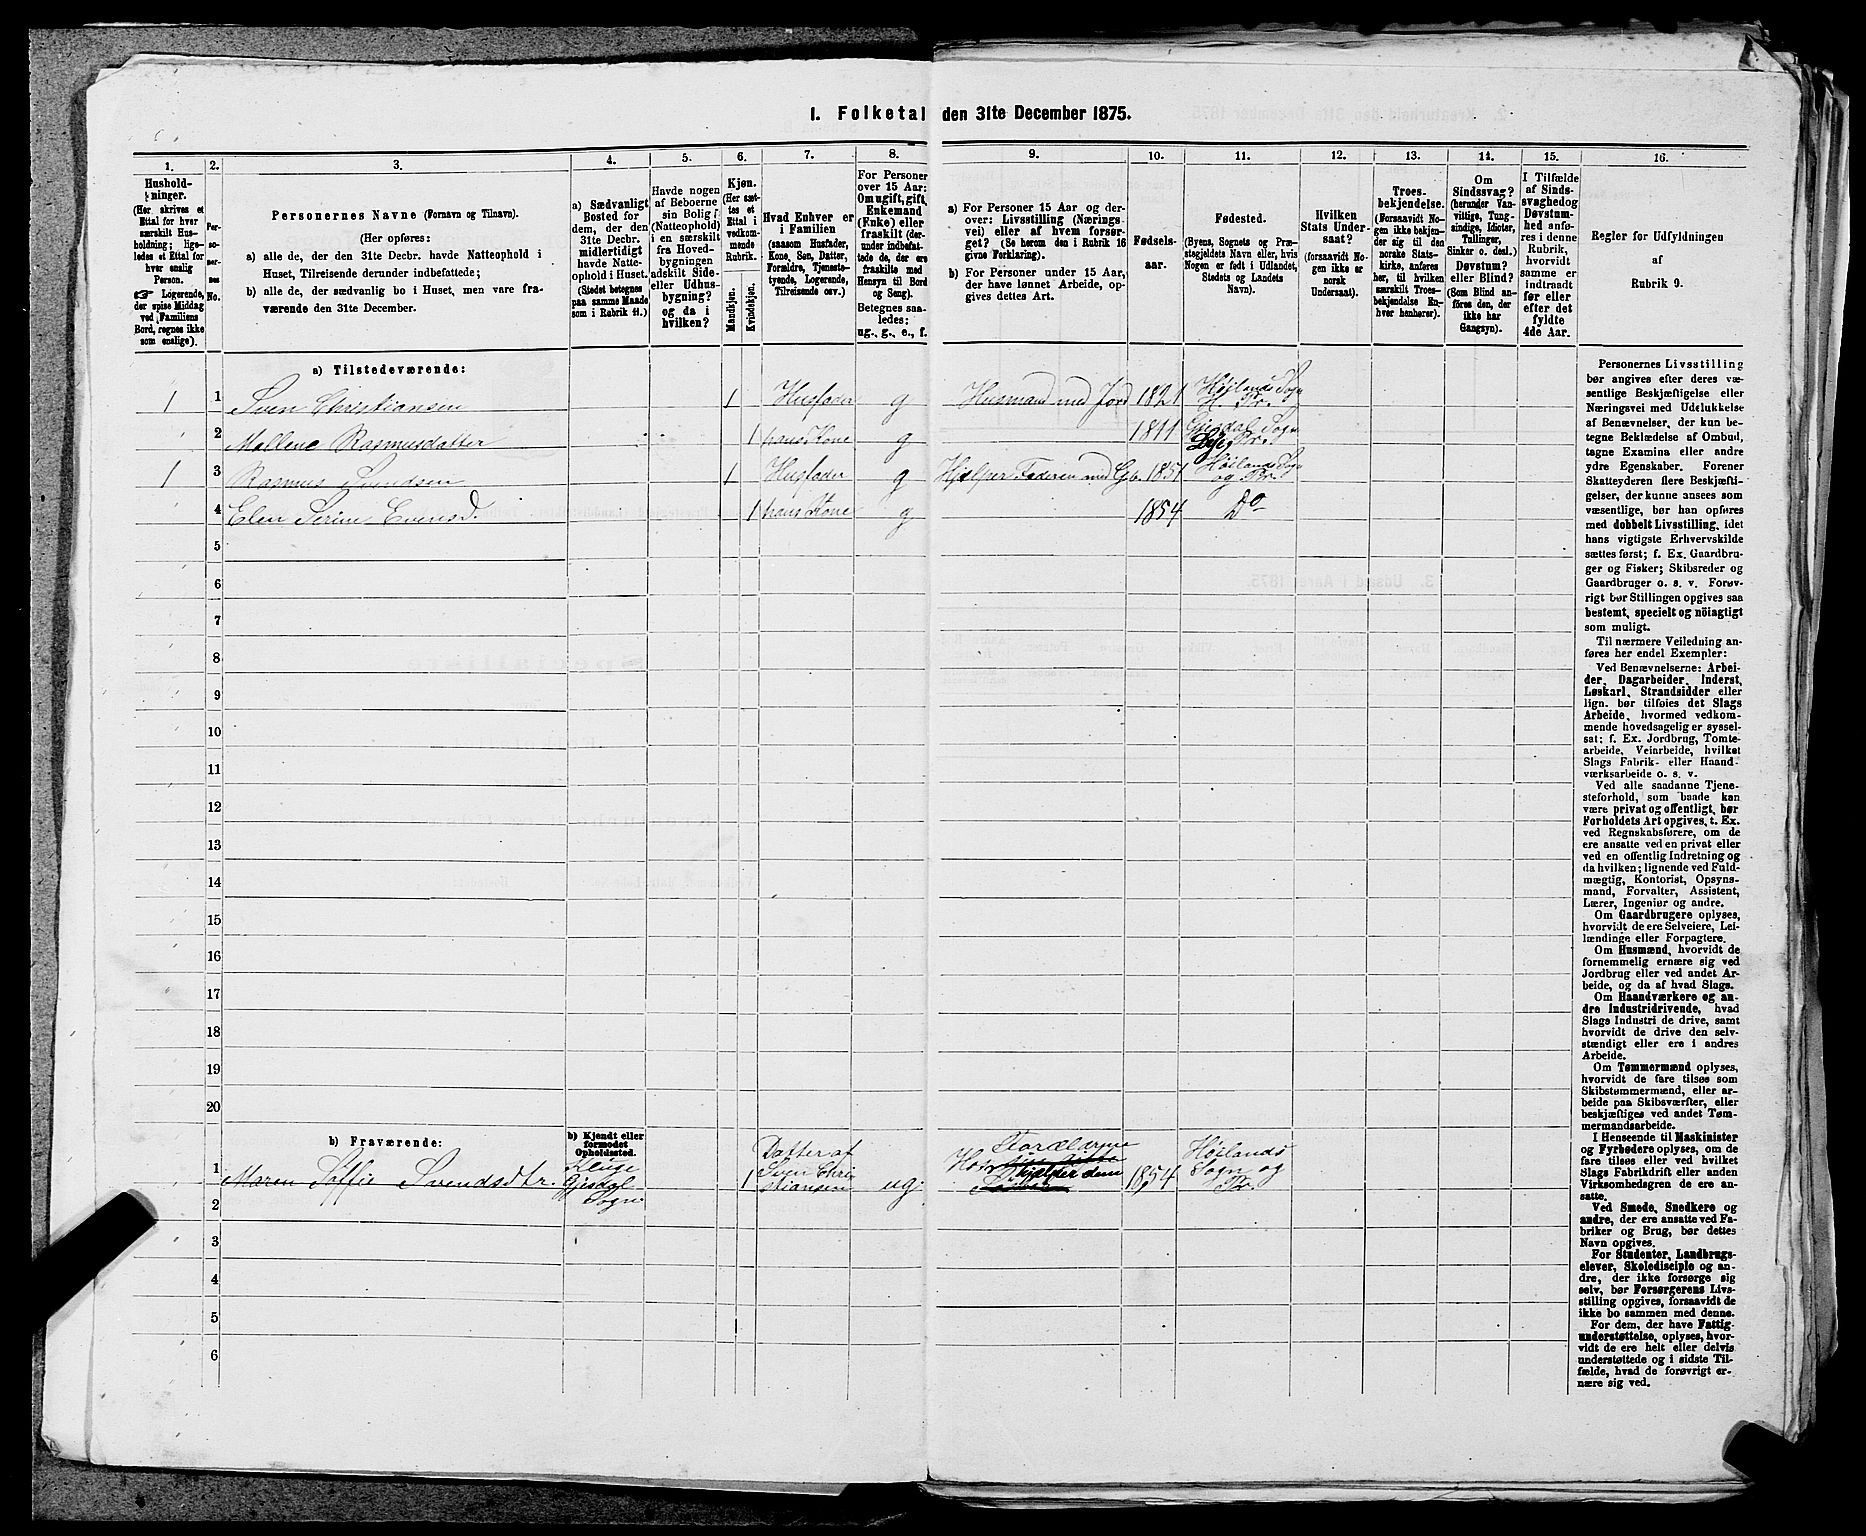 I. Folketal den 31te December 1875.
1. 2. 3. 4. 5. 6. 7. 8. 9. 10. 11. 12. 13. 14. 15. 16.
Hushold-
ninger.
(Her skrives et
Ettal for hver
særskilt Hus-
holdning; lige-
ledes et Ettal for
hver enslig
Person.
☞ Logerende,
der spise Middag
ved Familiens
Bord, regnes ikke
som enslige).
Per-
so-
ner-
nes
No.
Personernes Navne (Fornavn og Tilnavn).
(Her opføres:
a) alle de, der den 31te Decbr. havde Natteophold i
Huset, Tilreisende derunder indbefattede;
b) alle de, der sædvanlig bo i Huset, men vare fra-
værende den 31te December.
a) Sædvanligt
Bosted for
dem, der den
31te Decbr.
midlertidigt
havde Natte-
ophold i Huset.
(Stedet betegnes
paa samme Maade
som i Rubrik 11.)
Havde nogen
af Beboerne
sin Bolig
(Natteophold)
i en særskilt
fra Hoved-
bygningen
adskilt Side-
eller Udhus-
bygning?
og da i
hvilken?
Kjøn.
(Her sæt-
tes et
Ettal i
vedkom-
mende
Rubrik.
Mandkjøn.
Kvindekjøn.
Hvad Enhver er
i Familien
(saasom Husfader,
Kone, Søn, Datter,
Forældre, Tjeneste-
tyende, Logerende,
Tilreisende osv.)
For Personer
over 15 Aar:
Om ugift, gift,
Enkemand
(Enke) eller
fraskilt (der-
under indbefat-
tede de, der ere
fraskilte med
Hensyn til Bord
og Seng).
Betegnes saa-
ledes:
ug., g., e., f.
a) For Personer 15 Aar og der-
over: Livsstilling (Nærings-
vei) eller af hvem forsør-
get? (Se herom den i Rubrik 16
givne Forklaring).
b) For Personer under 15 Aar,
der have lønnet Arbeide, op-
gives dettes Art.
Fødsels-
aar.
Fødested.
(Byens, Sognets og Præ-
stegjeldets Navn eller, hvis
Nogen er født i Udlandet,
Stedets og Landets
Navn).
Hvilken
Stats Under-
saat?
(forsaavidt No-
gen ikke er
norsk
Undersaat).
Troes-
bekjendelse.
(Forsaavidt No-
gen ikke bekjen-
der sig til den
norske Stats-
kirke, anføres
her, til hvilken
særskilt Troes-
bekjendelse En-
hver henhører).
Om
Sindssvag?
(herunder Van-
vittige, Tung-
sindige, Idioter,
Tullinger,
Sinker o. desl.)
Døvstum?
eller Blind?
(Som Blind an-
føres den, der
ikke har
Gangsyn).
I Tilfælde
af Sinds-
svaghed og
Døvstum-
hed anfø-
res i denne
Rubrik,
hvorvidt
samme er
indtraadt
før eller
efter det
fyldte
4de Aar.
Regler for Udfyldningen
af
Rubrik 9.
a) Tilstedeværende:
1 1 Sven Christiansen 1 Husfader g Husmand med Jord 1821 Høilands Sogn H. Pr.
2 Mallene Rasmusdatter 1 hans Kone g 1811 Gjesdal Sogn Lye Pr.
1 3 Rasmus Svendsen 1 Husfader g Hjælper Faderen med Gb. 1851 Høilands Sogn og Pr.
4 Elen Serine Evensd. 1 hans Kone g 1854 Do
5
6
7
8
9
10
11
12
13
14
15
16
17
18
19
20
b) Fraværende:
b) Kjendt eller
formodet
Opholdssted.
1 Maren Soffie Svendsdtr. Kluge Gjesdal Sogn 1 Datter af Sven Christiansen ug. Forældrene hjælper dem 1854 Høilands Sogn og Pr.
2
3
4
5
6
Personernes Livsstilling
bør angives efter deres væ-
sentlige Beskjæftigelse eller
Næringsvei med Udelukkelse
af Benævnelser, der kun be-
tegne Beklædelse af Ombud,
tagne Examina eller andre
ydre Egenskaber. Forener
Skatteyderen flere Beskjæfti-
gelser, der kunne ansees som
væsentlige, bør han opføres
med dobbelt Livsstilling, idet
hans vigtigste Erhvervskilde
sættes først; f. Ex. Gaardbru-
ger og Fisker; Skibsreder og
Gaardbruger o. s. v. Forøv-
rigt bør Stillingen opgives saa
bestemt, specielt og nöiagtigt
som muligt.
Til nærmere Veiledning an-
føres her endel Exempler:
Ved Benævnelserne: Arbei-
der, Dagarbeider, Inderst,
Løskarl, Strandsidder eller
lign. bør tilføies det Slags
Arbeide, hvormed vedkom-
mende hovedsagelig er syssel-
sat; f. Ex. Jordbrug, Tomte-
arbeide, Veiarbeide, hvilket
Slags Fabrik- eller Haand-
værksarbeide o. s. v.
Ved alle saadanne Tjene-
steforhold, som baade kan
være privat og offentligt, bør
Forholdets Art opgives, t. Ex.
ved Regnskabsførere, om de
ere ansatte ved en privat eller
ved en offentlig Indretning og
da hvilken; lignende ved Fuld-
mægtig, Kontorist, Opsyns-
mand, Forvalter, Assistent,
Lærer, Ingeniør og andre.
Om Gaardbrugere oplyses,
hvorvidt de ere Selveiere, Lei-
lændinge eller Forpagtere.
Om Husmænd, hvorvidt de
fornemmelig ernære sig ved
Jordbrug eller ved andet Ar-
beide, og da af hvad Slags.
Om Haandværkere og an-
dre Industridrivende, hvad
Slags Industri de drive, samt
hvorvidt de drive den selv-
stændigt eller ere i andres
Arbeide.
Om Tømmermænd oplyses,
hvorvidt de fare tilsøs som
Skibstømmermænd, eller ar-
beide paa Skibsværfter, eller
beskjæftiges ved andet Tøm-
mermandsarbeide.
I Henseende til Maskinister
og Fyrbødere oplyses, om de
fare tilsøs eller ved hvilket
Slags Fabrikdrift eller anden
Virksomhedsgren de ere an-
satte.
Ved Smede, Snedkere og
andre, der ere ansatte ved Fa-
briker og Brug, bør dettes
Navn opgives.
For Studenter, Landbrugs-
elever, Skoledisciple og an-
dre, der ikke forsørge sig
selv, bør Forsørgerens Livs-
stilling opgives, forsaavidt de
ikke bo sammen med denne.
For dem, der have Fattig-
understøttelse, oplyses, hvor-
vidt de ere helt eller delvis
understøttede og i sidste Til-
fælde, hvad de forøvrigt er-
nære sig ved.